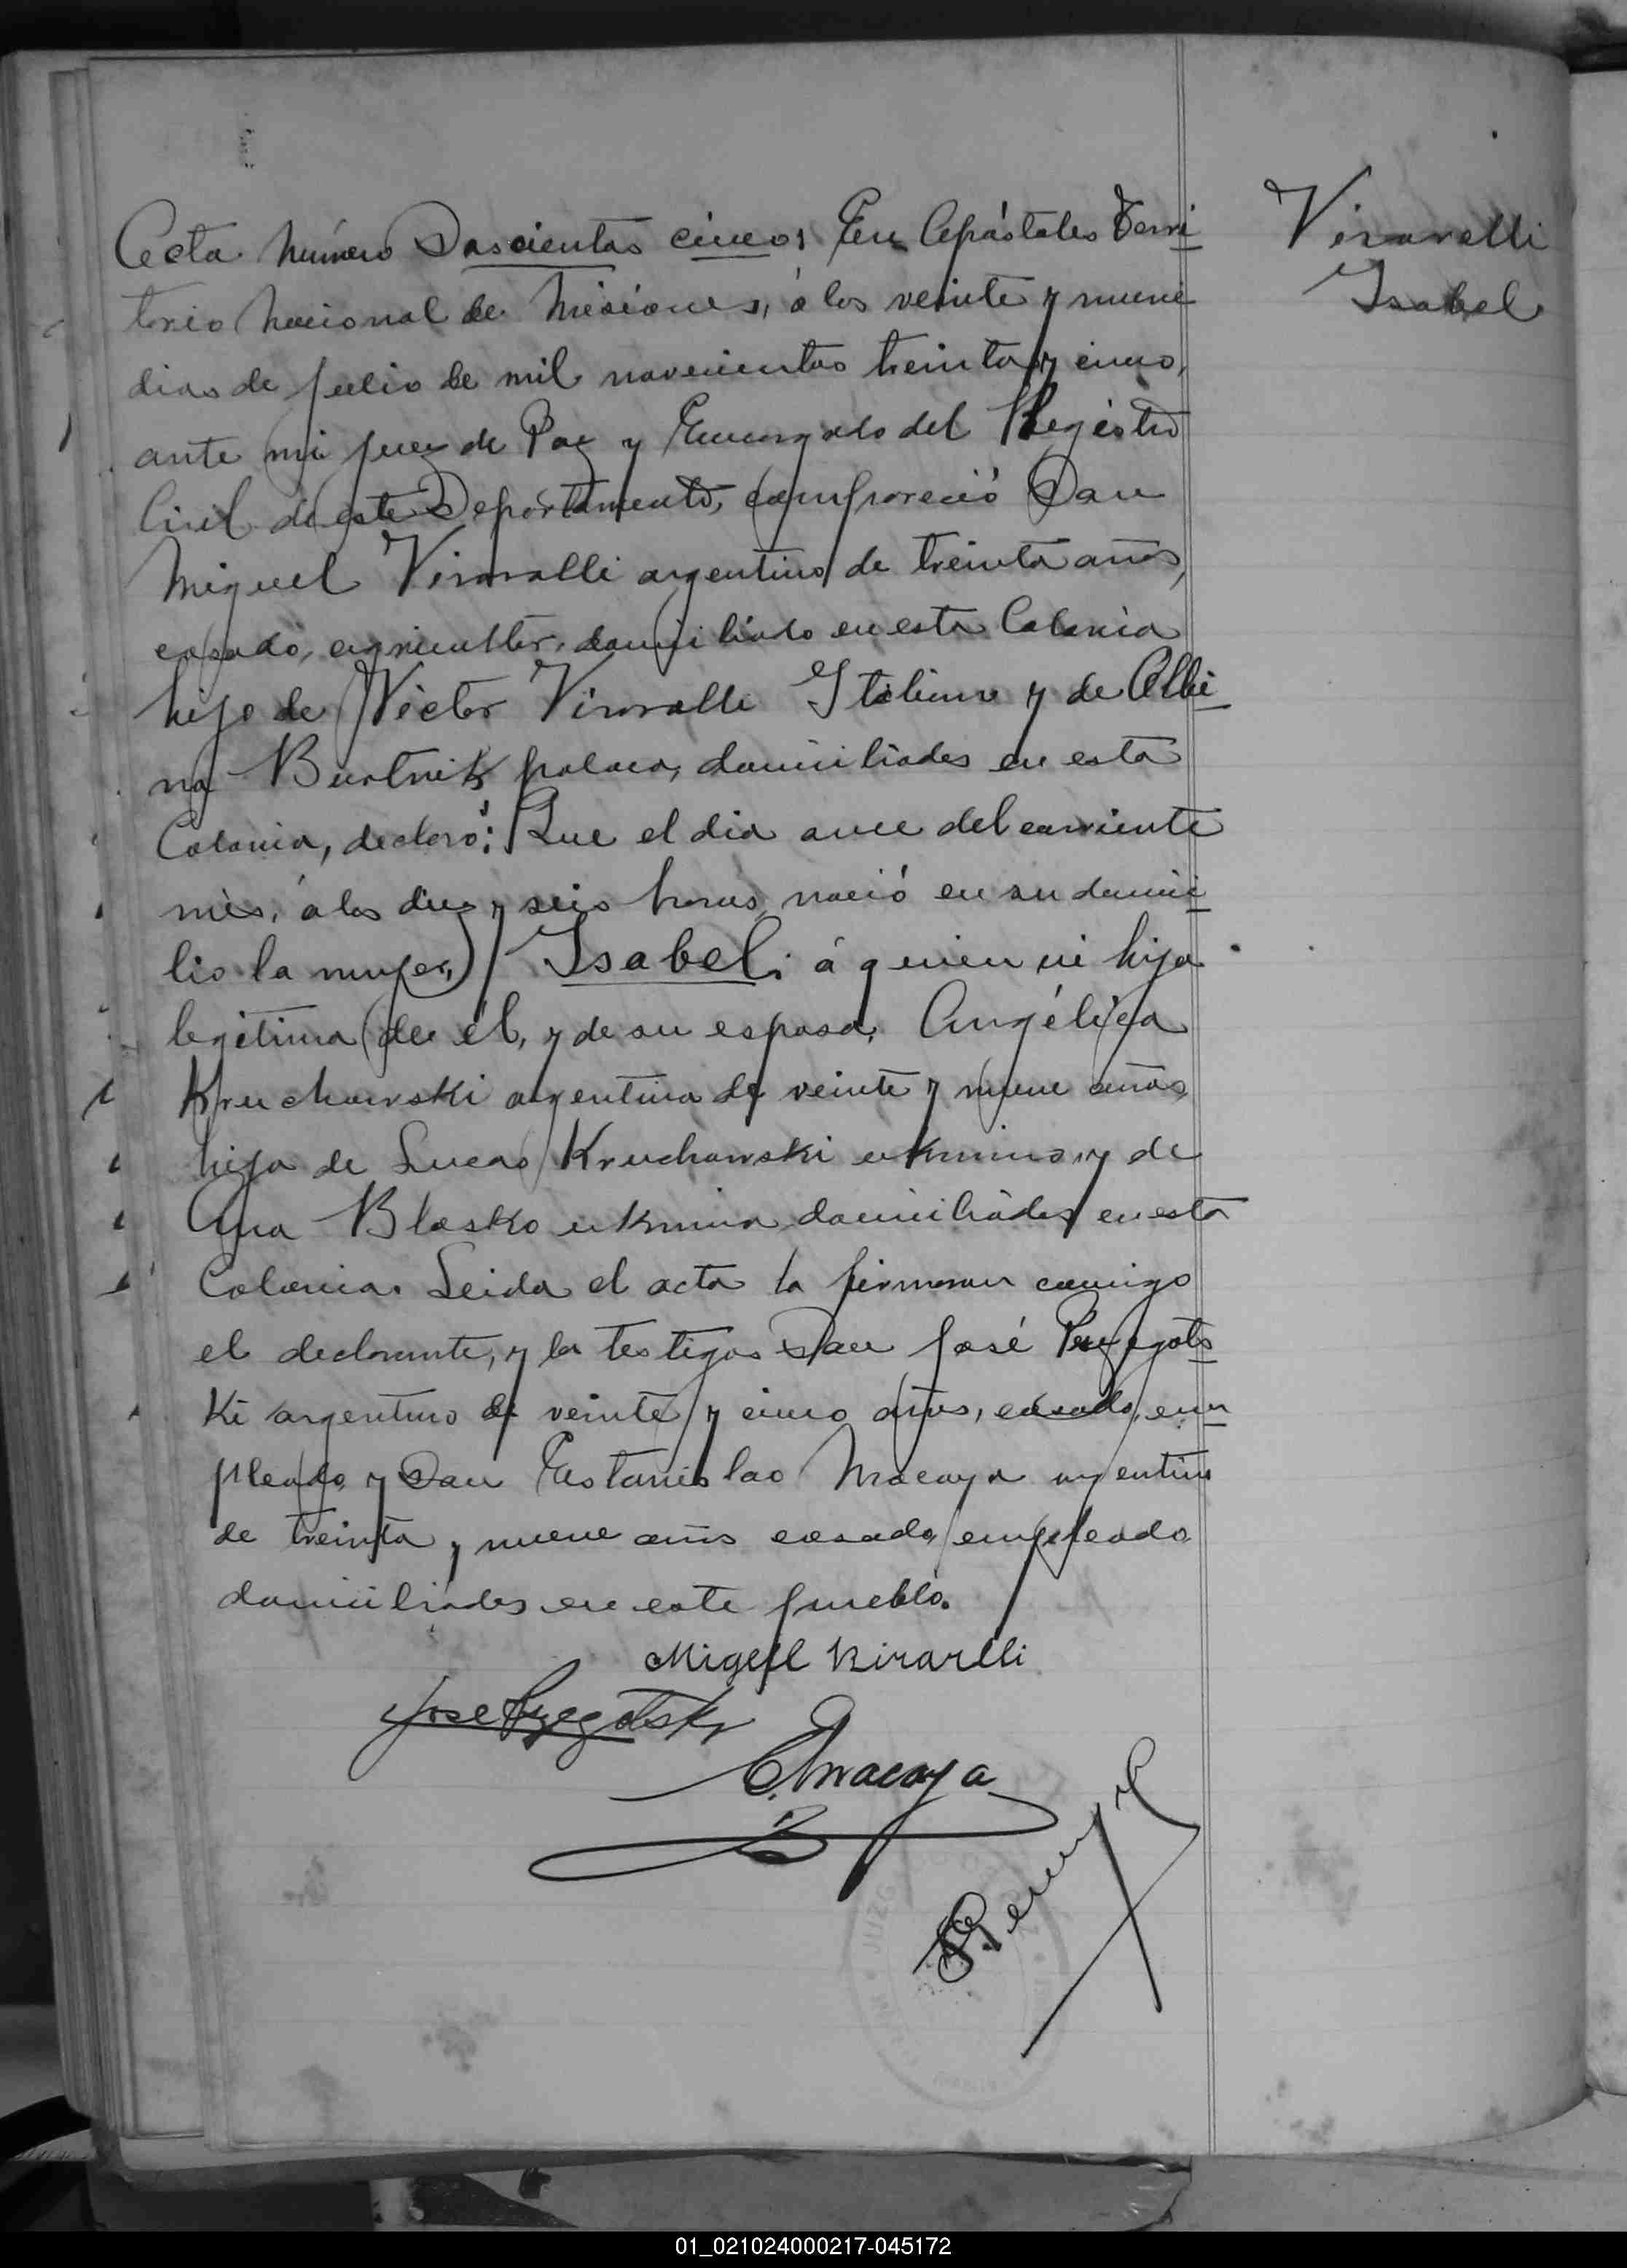 Acta número Doscientos cinco: En Apóstoles Terri
torio Nacional de Misiones, á los veinte y nueve
dias de Julio de mil novecientos treinta y cinco,
ante mi Juez de Paz y Encargado del Registro
Civil de este Departamento, compareció Don
Miguel Viravalli argentino de treinta años,
casado, agricultor, domiciliado en esta Colonia
hijo de Victor Viravalli Italiano y de Albi
na Burtnik polaca, domiciliados en esta
Colonia, declaró: Que el dia once del corriente
mes, á las diez y seis horas, nació en su domi
lio la mujer, Isabel: á quien vi hija
legitima de él, y de su esposa, Angélica
Kruchowski argentina de veinte y nueve años,
hija de Lucas Kruchowski ukranio, y de
Ana Blasko ukrania domiciliados en esta
Colonia. Leida el acta la firmaron conmigo
el declarante, y los testigos Don José Przygots
ki argentino de veinte y cinco años, casado, em
pleado, y Don Estanislao Macaya argentino
de treinta y nueve años casado, empleado
domiciliados en este pueblo.
Viravelli
Isabel
Miguel Virarelli
Jose Przygotski
E. Macaya
01_021024000217-045172